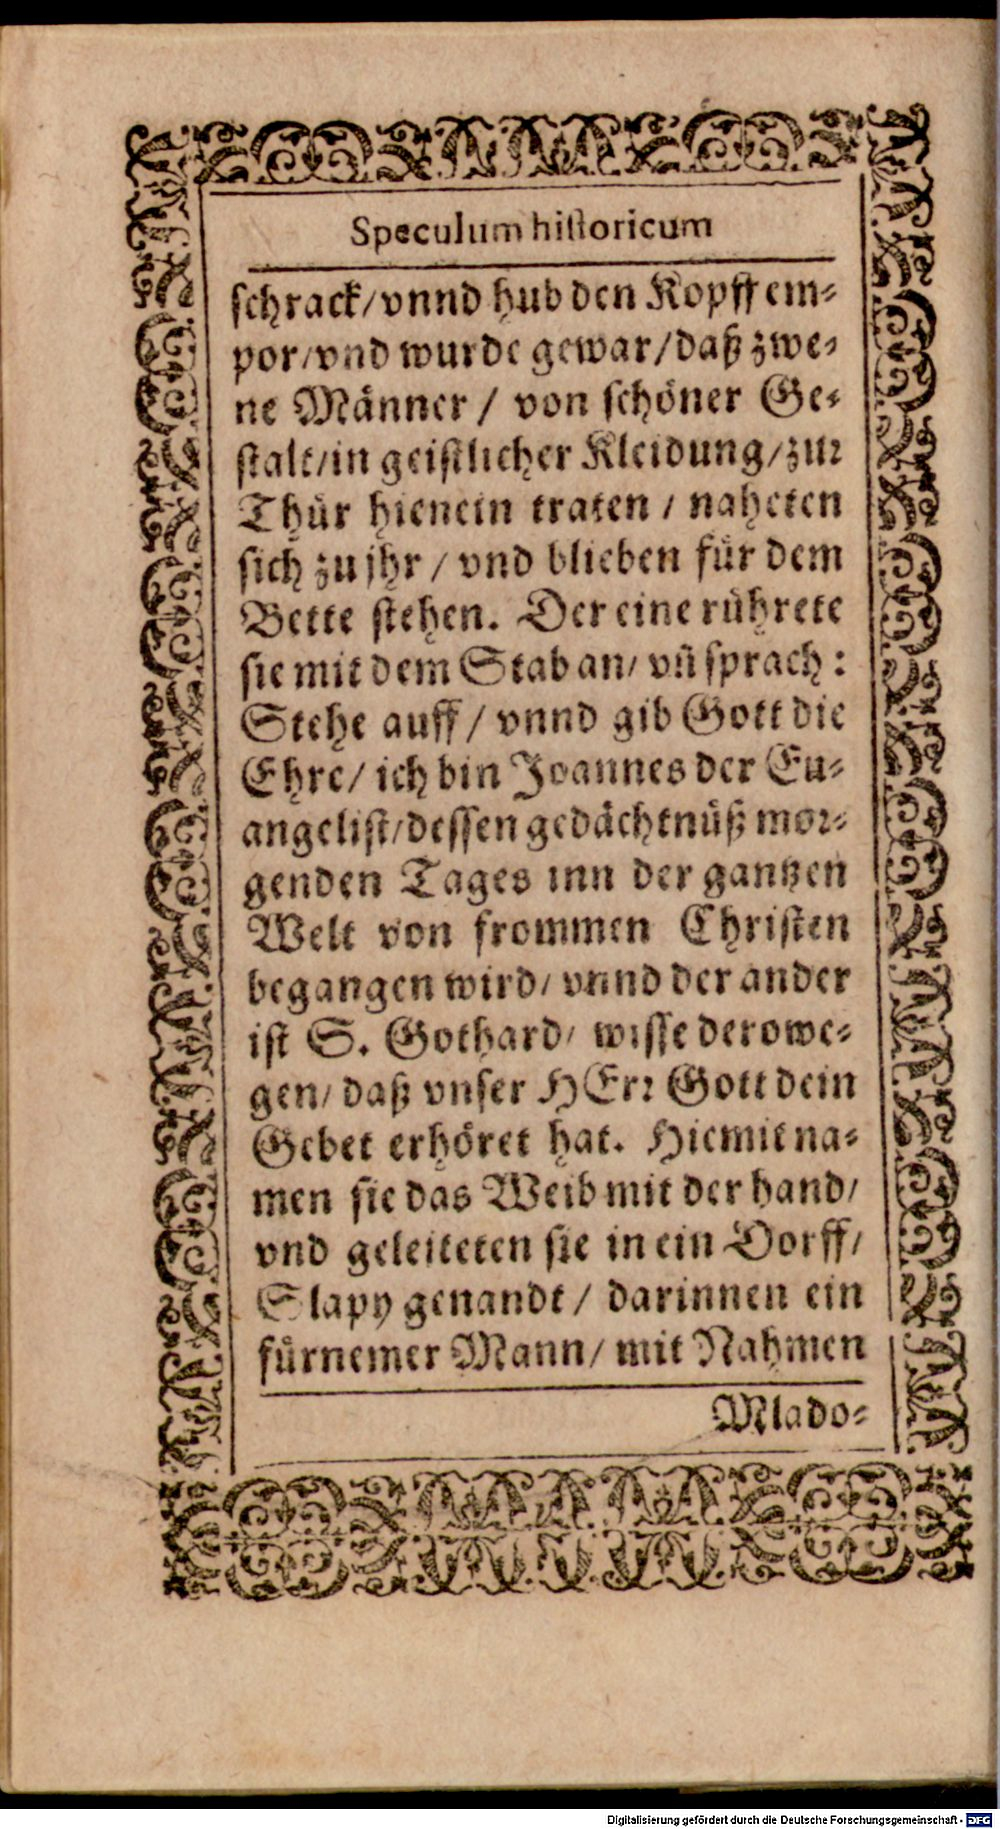 Speculum hiſtoricum
ſchrack/vnnd hub den Kopff em⸗
por/vnd wurde gewar/daß zwe⸗
ne Männer / von ſchöner Ge⸗
ſtalt/in geiſtlicher Kleidung/zur
Thür hienein traten / naheten
ſich zu jhr / vnd blieben für dem
Bette ſtehen. Der eine rührete
ſie mit dem Stab an/ vñ ſprach:
Stehe auff / vnnd gib Gott die
Ehre/ ich bin Joannes der Eu⸗
angeliſt/deſſen gedächtnüß mor⸗
genden Tages inn der gantzen
Welt von frommen Chriſten
begangen wird/ vnnd der ander
iſt S. Gothard/ wiſſe derowe⸗
gen/ daß vnſer HErr Gott dein
Gebet erhöret hat. Hiemit na⸗
men ſie das Weib mit der hand/
vnd geleiteten ſie in ein Dorff/
Slapy genandt / darinnen ein
fürnemer Mann/ mit Nahmen
Mlado⸗
Digitalisierung gefördert durch die Deutsche Forschungsgemeinschaft - DFG